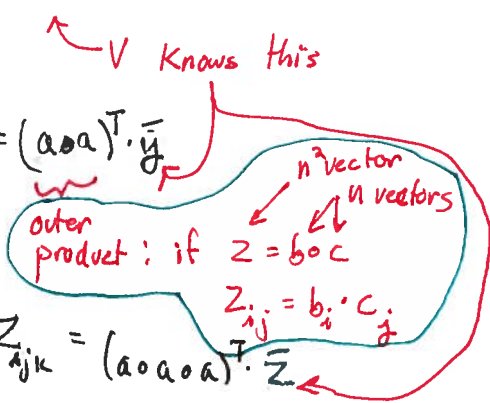 V knows this
= (a∘a)ᵀ · ȳ
n² vector
n vectors
outer
product : if z = b∘c
z_ij = b_i · c_j
z_ijk = (a∘a∘a)ᵀ · z̄